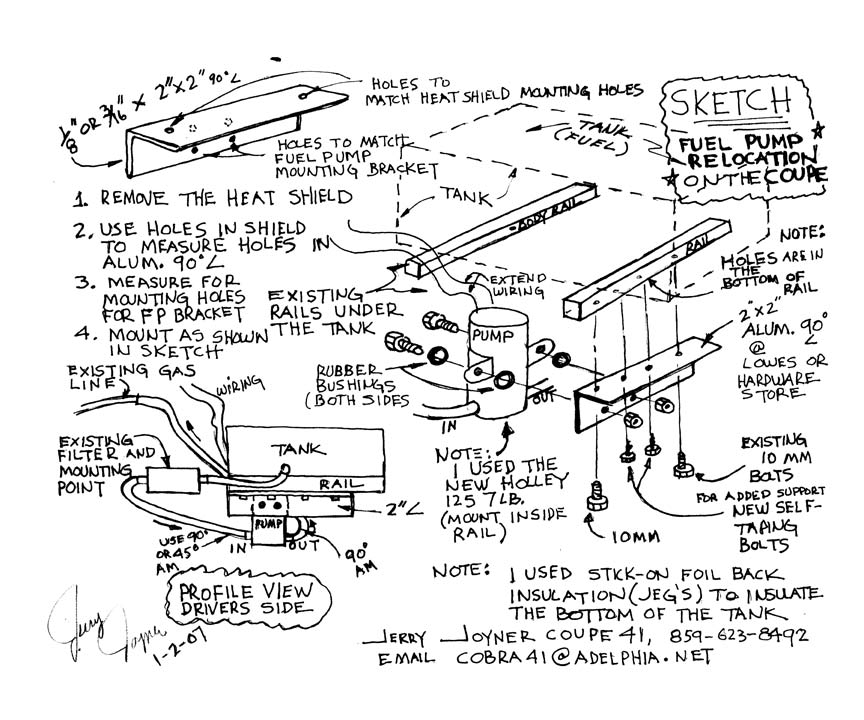 1/8" OR 3/16" X 2"X2" 90°L
HOLES TO
MATCH HEAT SHIELD MOUNTING HOLES
HOLES TO MATCH
FUEL PUMP
MOUNTING BRACKET
SKETCH
FUEL PUMP
RELOCATION
ON THE COUPE
TANK
(FUEL)
TANK
1. REMOVE THE HEAT SHIELD
2. USE HOLES IN SHIELD
TO MEASURE HOLES IN
ALUM. 90°L
3. MEASURE FOR
MOUNTING HOLES
FOR FP BRACKET
4. MOUNT AS SHOWN
IN SKETCH
BODY RAIL
RAIL
NOTE:
HOLES ARE IN
THE
BOTTOM OF
RAIL
EXISTING
RAILS UNDER
THE TANK
EXTEND
WIRING
PUMP
RUBBER
BUSHINGS
(BOTH SIDES
IN
OUT
2"X2"
ALUM. 90°
L
@
LOWES OR
HARDWARE
STORE
EXISTING GAS
LINE
WIRING
EXISTING
FILTER AND
MOUNTING
POINT
TANK
RAIL
2"L
PUMP
IN
OUT
USE 90°
OR 45°
AM
90°
AM
NOTE:
I USED THE
NEW HOLLEY
125 7LB.
(MOUNT INSIDE
RAIL)
10MM
EXISTING
10 MM
BOLTS
FOR ADDED SUPPORT
NEW SELF-
TAPING
BOLTS
PROFILE VIEW
DRIVERS SIDE
NOTE: I USED STICK-ON FOIL BACK
INSULATION (JEG'S) TO INSULATE
THE BOTTOM OF THE TANK
JERRY JOYNER COUPE 41, 859-623-8492
EMAIL COBRA41@ADELPHIA.NET
Jerry
Joyner
1-2-07